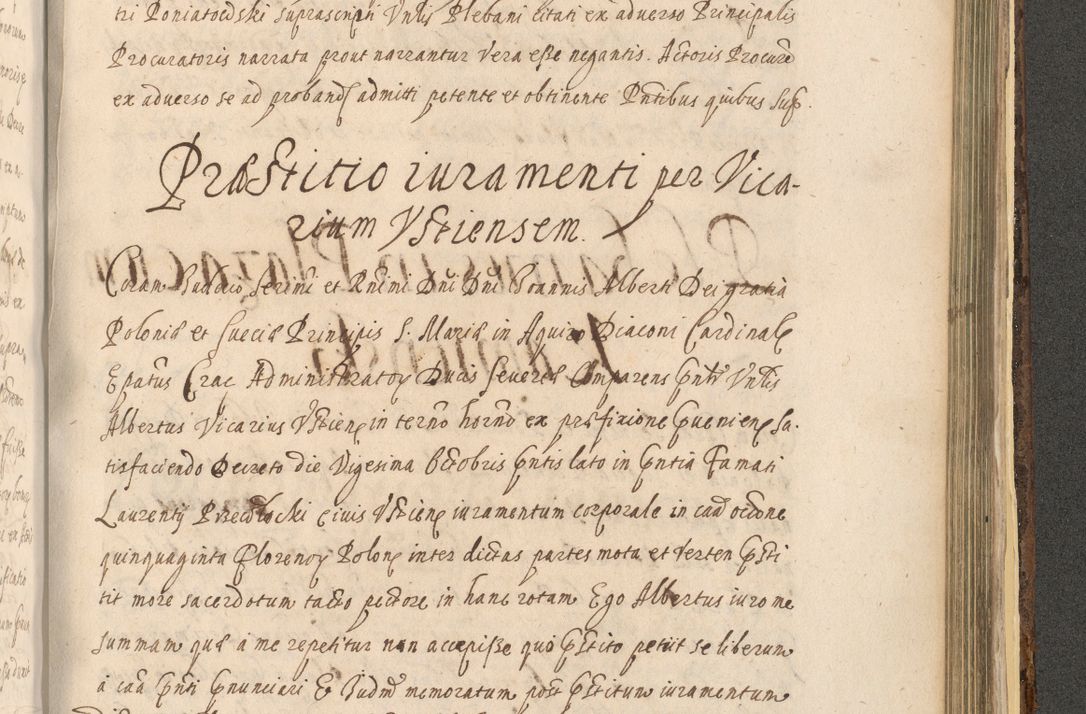 tri Poniatoẃski suprascripti Vntis Plebani citati ex adverso Principalis
Procuratoris narrata prout narrantur Vera eße negantis. Actoris Procure
ex adverso se ad proband admitti petente et obtinente Pntibus quibus sup.
Præstitio iuramenti per Vica-
rium Vstiensem.
Coram Iudicio Serñi et Rñimi Dñi Dñi Ioannis Alberti Dei gratia
Poloniæ et Sueciæ Principis S. Mariæ in Aquiro Diaconi Cardinal
Epatus Crac Administrator Ducis Severiæ Comparens Pntr Vntis
Albertus Vicarius Vstien in termõ hornõ ex præfixione pvenien Sa-
tisfaciendo Decreto die Vigesima Octobris pntis lato in pntia Famati
Laurentij Przecłocki civis Vstien iuramentum corporale in cau occõne
quinquaginta Florenor Polon inter dictas partes mota et verten psti
tit more sacerdotum tacto pectore in hanc rotam Ego Albertus iuro me
summam quæ a me repetitur non accepiße quo pstito petijt se liberum
a caã pnti pnunciari Et Iudm memoratum post pstitum iuramentum